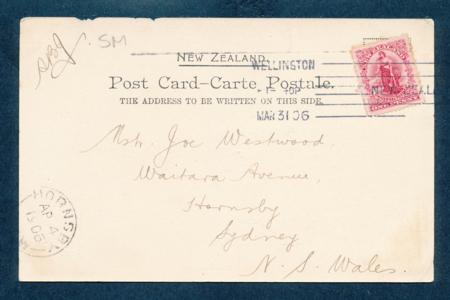 SM
NEW ZEALAND.
WELLINGTON
Post Card–Carte Postale.
THE ADDRESS TO BE WRITTEN ON THIS SIDE.
MAR 31 06
Joe Westwood,
Waitara Avenue,
Hornsby
Sydney
N. S. Wales.
HORNSBY
AP 4
06